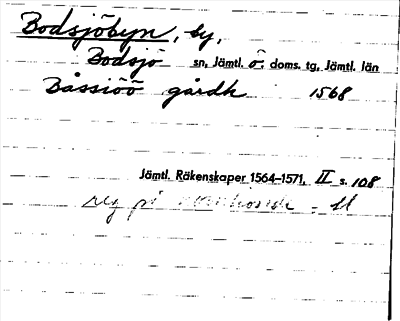 Bodsjöbyn, by,
Bodsjö sn, Jämtl. ö. doms. tg, Jämtl. län
Båssiöö gårdh 1568
Jämtl. Räkenskaper 1564-1571, II s. 108
reg på